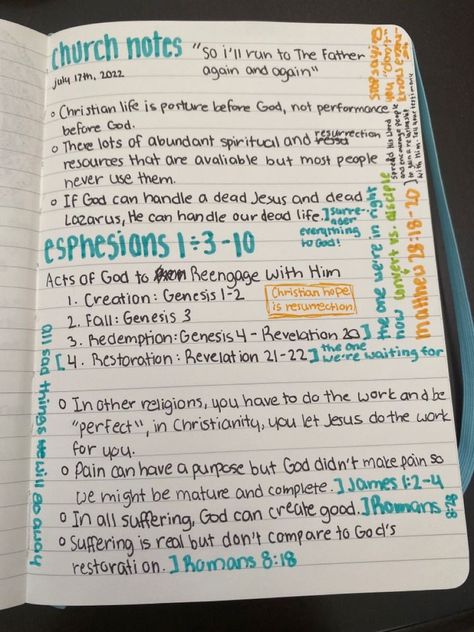 church notes
july 17th, 2022
"So i'll run to The Father
again and again"
o Christian life is posture before God, not performance
before God.
o There lots of abundant spiritual and resurrection
resources that are avaliable but most people
never use them.
o If God can handle a dead Jesus and dead
Lazarus, He can handle our dead life. ] surre-
nder
everything
to God!
esphesians 1:3-10
Acts of God to Reengage with Him
1. Creation: Genesis 1-2
Christian hope
is resurrection
2. Fall: Genesis 3
3. Redemption: Genesis 4 - Revelation 20 ] the one we're in right
now
[ 4. Restoration: Revelation 21-22 ] the one
we're waiting for
o In other religions, you have to do the work and be
"perfect", in Christianity, you let Jesus do the work
for you.
o Pain can have a purpose but God didn't make pain so
we might be mature and complete. ] James 1:2-4
o In all suffering, God can create good. ] Romans 8:28
o Suffering is real but don't compare to God's
restoration. ] Romans 8:18
all sad things will go away
convert vs. disciple
Matthew 28:18-20 ]
spreads His word
and encourage people
to gain a relationship
with Him
stop saying
"don't"